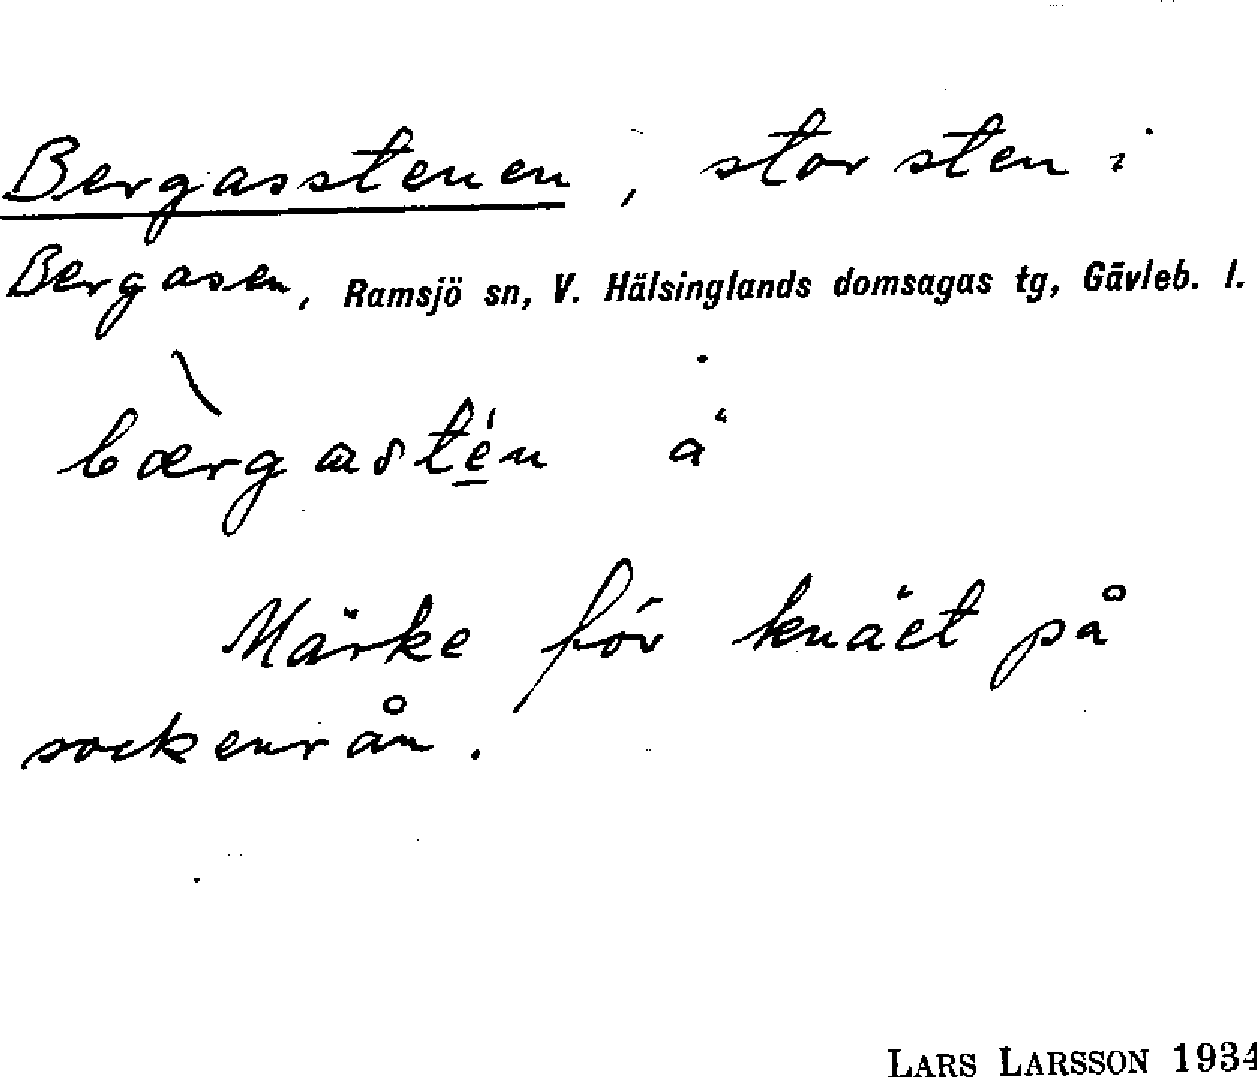 Bergasstenen, stor sten i
Bergasen, Ramsjö sn, V. Hälsinglands domsagas tg, Gävleb. l.
bærgastén å
Märke för knäet på
sockenrån.
LARS LARSSON 1934